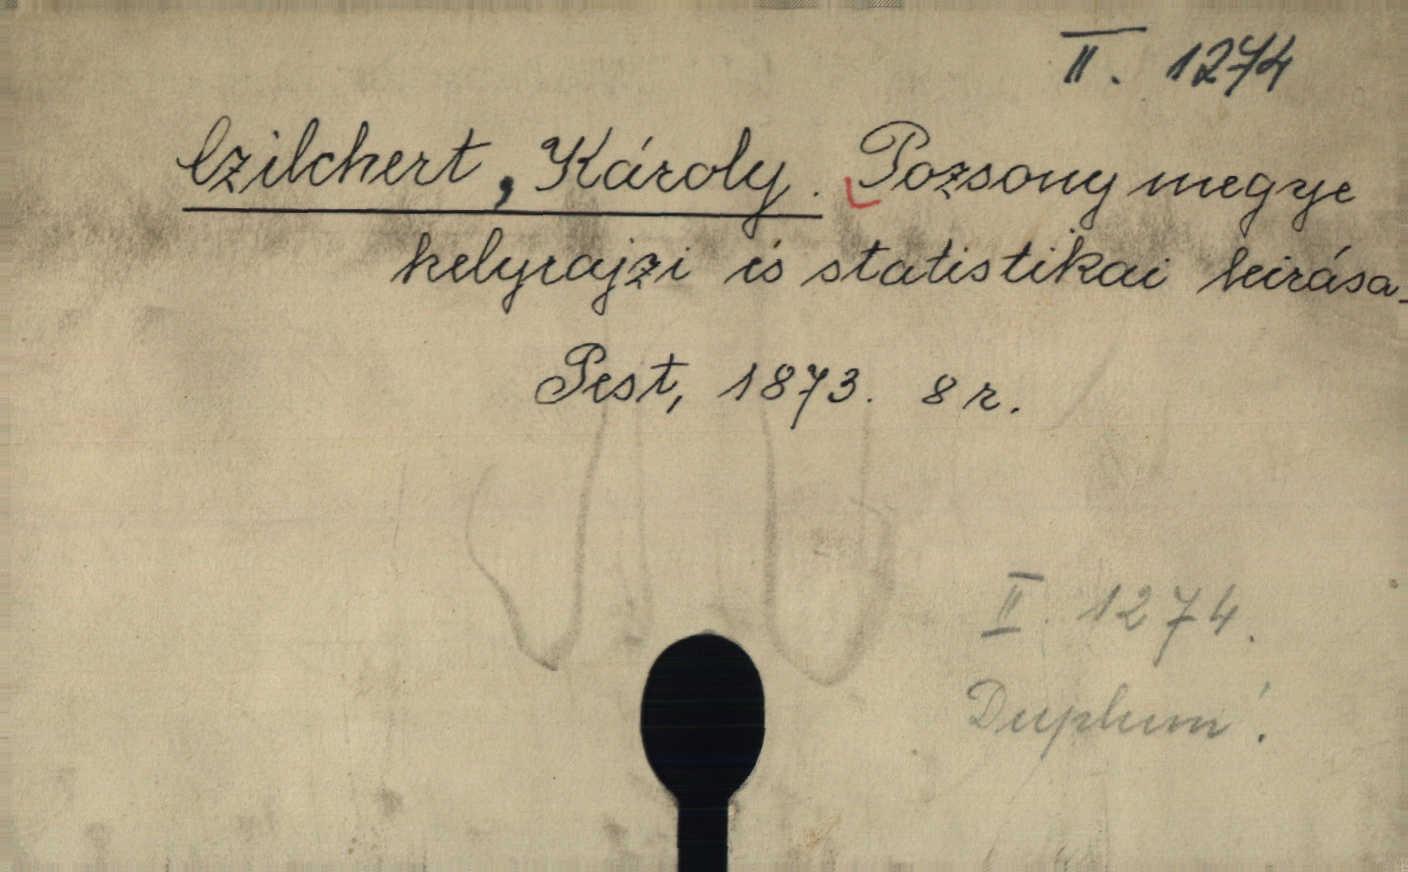 II. 1274
Czilchert, Károly. Pozsony megye
helyrajzi és statistikai leirása.
Pest, 1873. 8 r.
II. 1274.
Duplum!